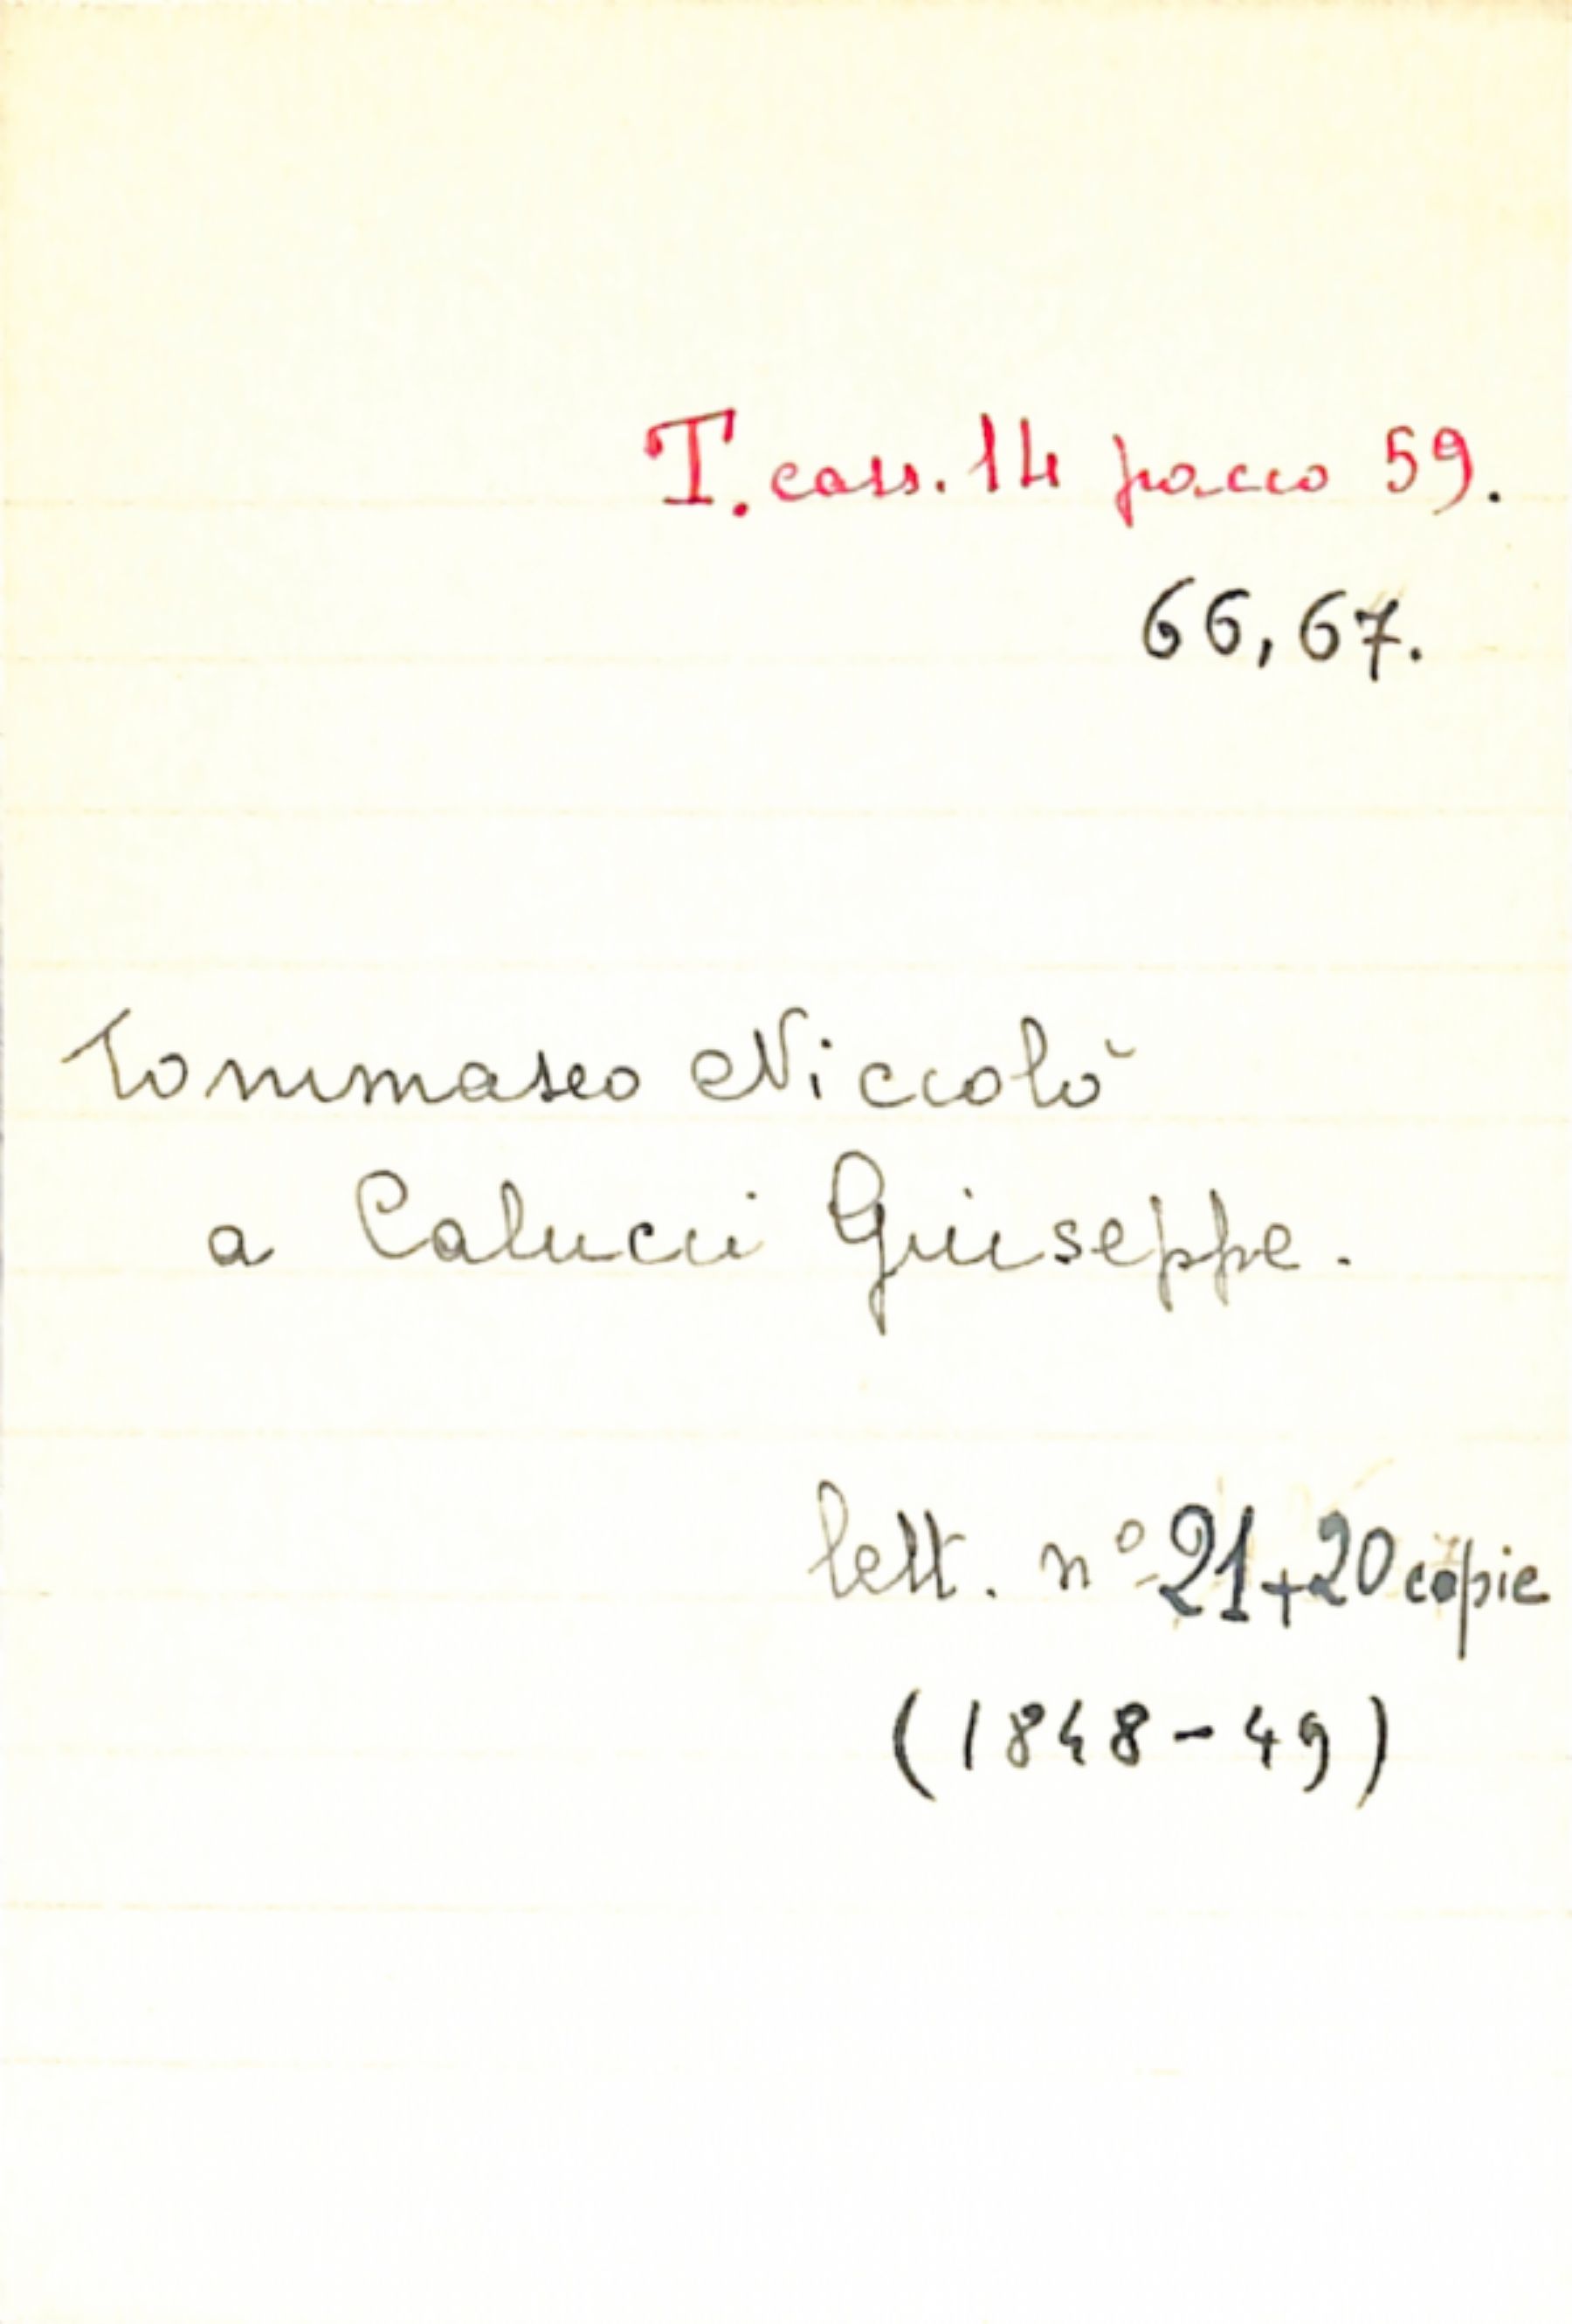 T. cass. 14 pacco 59.
66, 67.
Tommaseo Niccolò
a Calucci Giuseppe.
lett. n° 21 + 20 copie
(1848-49)